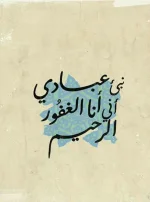 نبئ عبادي
أني أنا الغفور
الرحيم